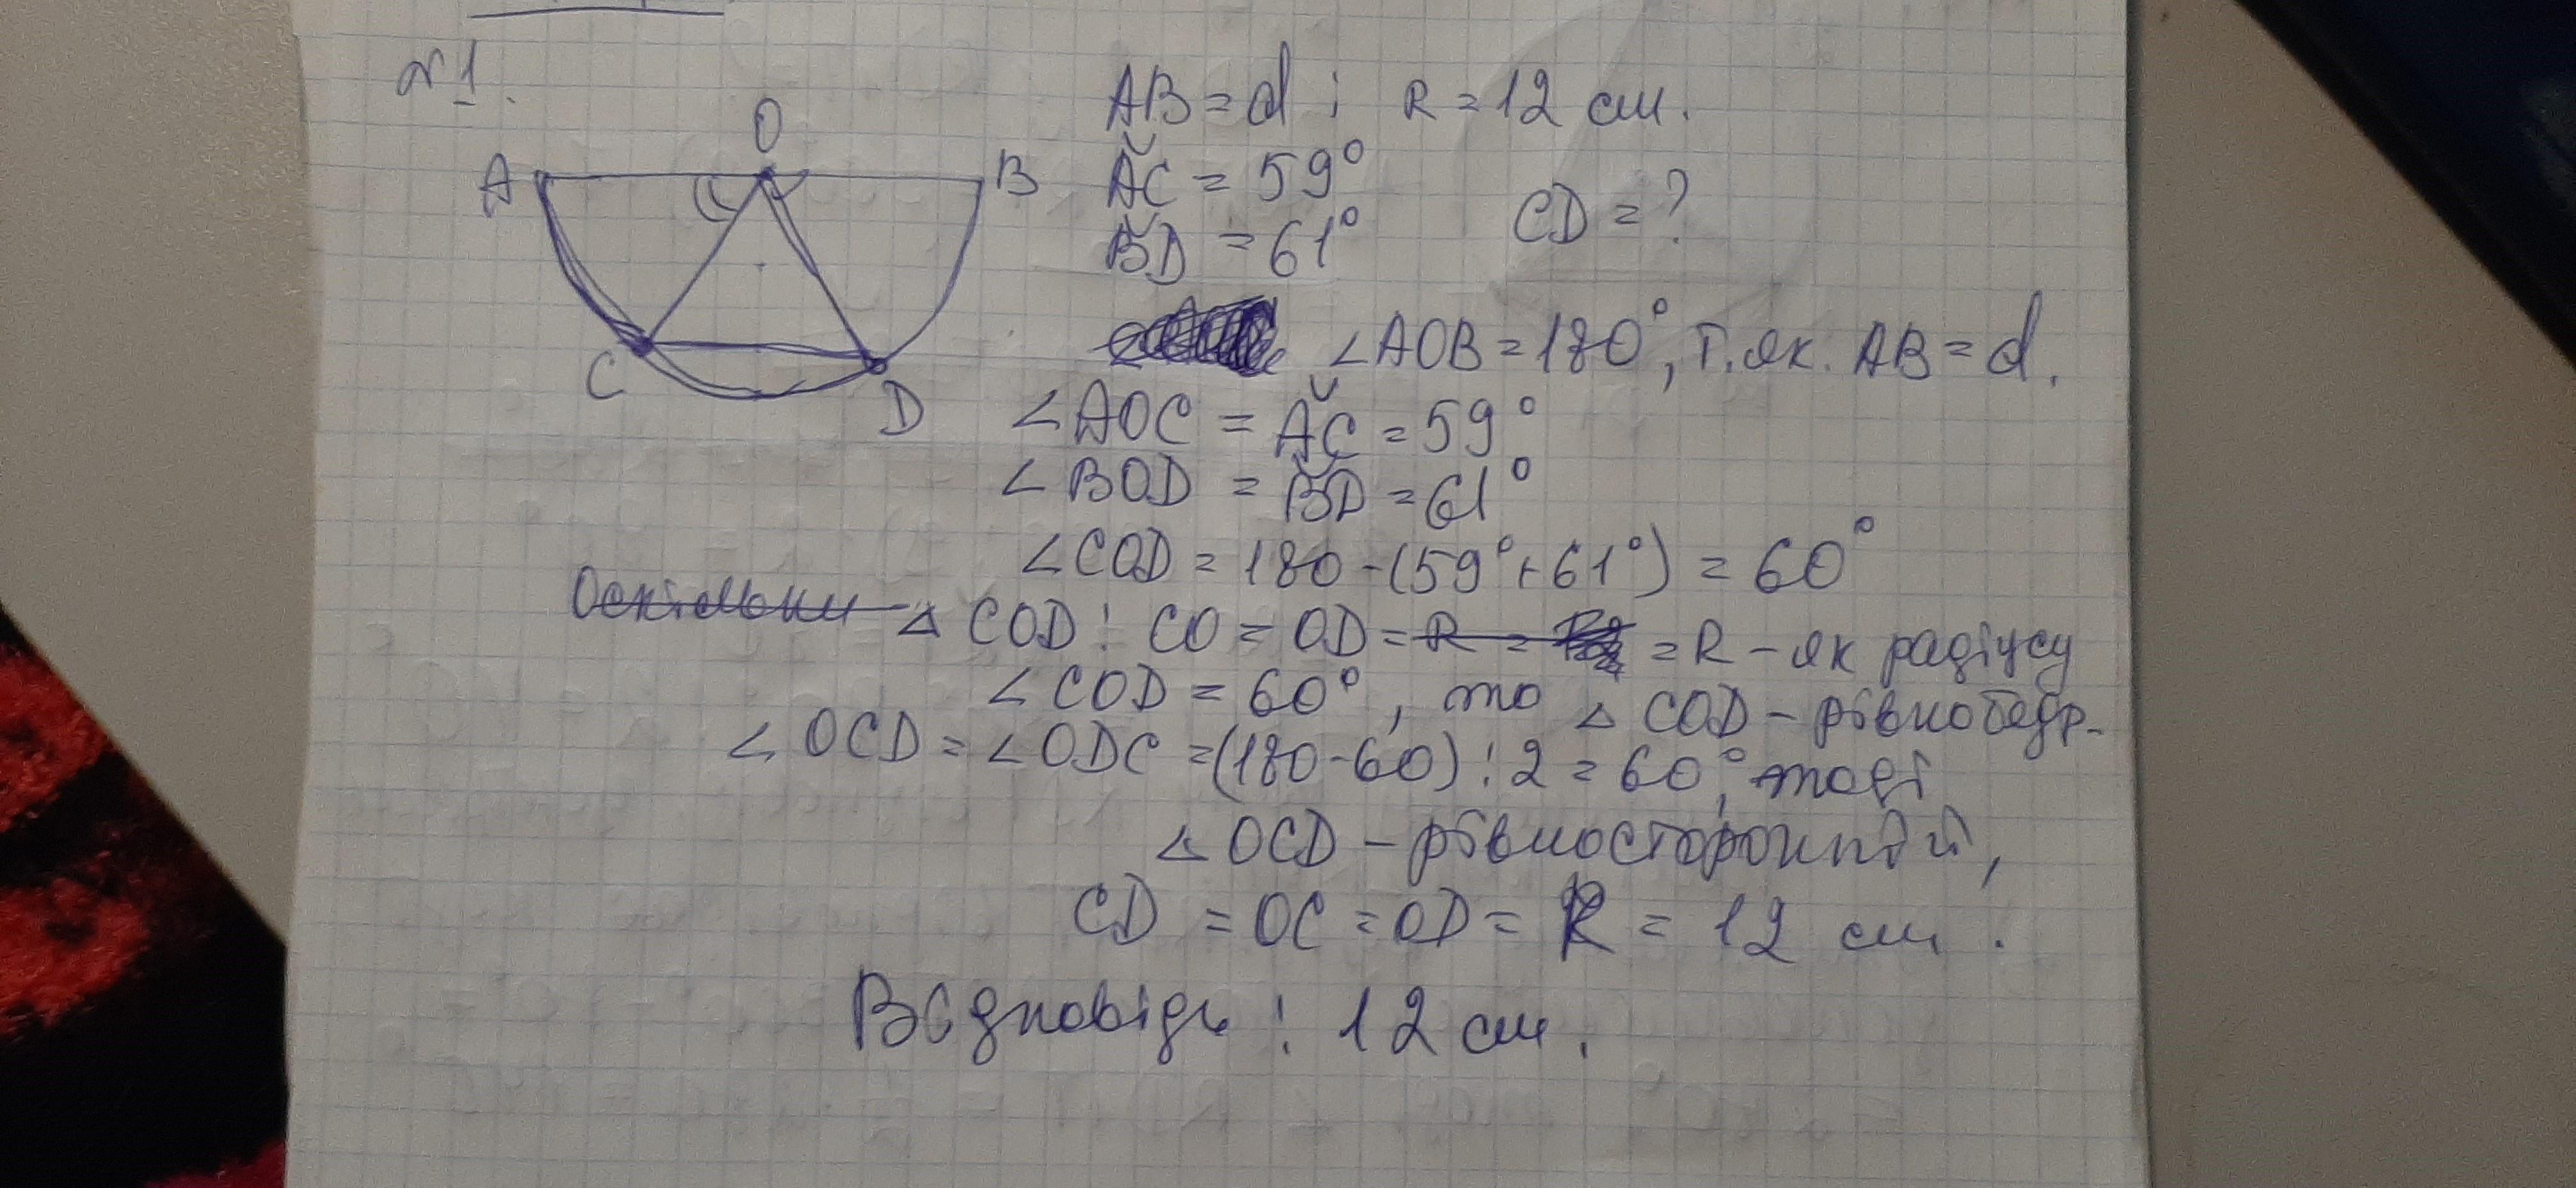 №1.
O
A
B
C
D
AB = d ; R = 12 см.
AC = 59°
BD = 61° CD = ?
∠AOB = 180°, т.як. AB = d.
∠AOC = AC = 59°
∠BOD = BD = 61°
∠COD = 180 - (59° + 61°) = 60°
Оскільки △ COD : CO = OD = R = = R - як радіусу
∠COD = 60°, то △ COD - рівнобедр.
∠OCD = ∠ODC = (180 - 60) : 2 = 60°, тоді
△ OCD - рівносторонній,
CD = OC = OD = R = 12 см.
Відповідь : 12 см.